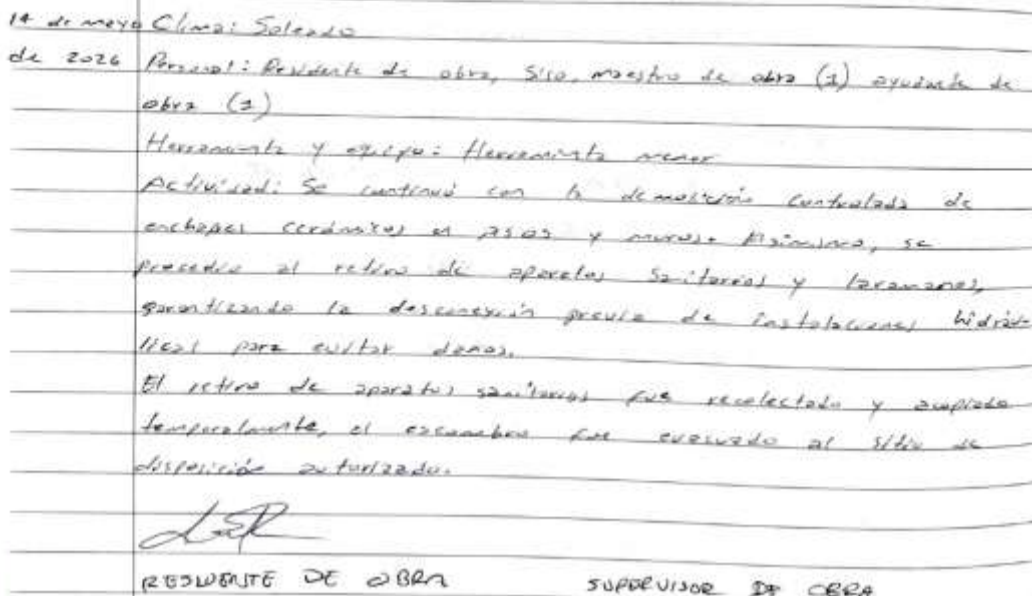 14 de mayo Clima: Soleado
de 2026 Personal: Residente de obra, Siso, maestro de obra (1) ayudante de
obra (1)
Herramienta y equipo: Herramienta menor
Actividad: Se continuó con la demolición controlada de
enchapes cerámicos en pisos y muros. Asimismo, se
procedio al retiro de aparatos sanitarios y lavamanos,
garantizando la desconexión previa de instalaciones hidráu-
licas para evitar daños.
El retiro de aparatos sanitarios fue recolectado y acopiado
temporalmente, el escombro fue evacuado al sitio de
disposición autorizado.
RESIDENTE DE OBRA SUPERVISOR DE OBRA